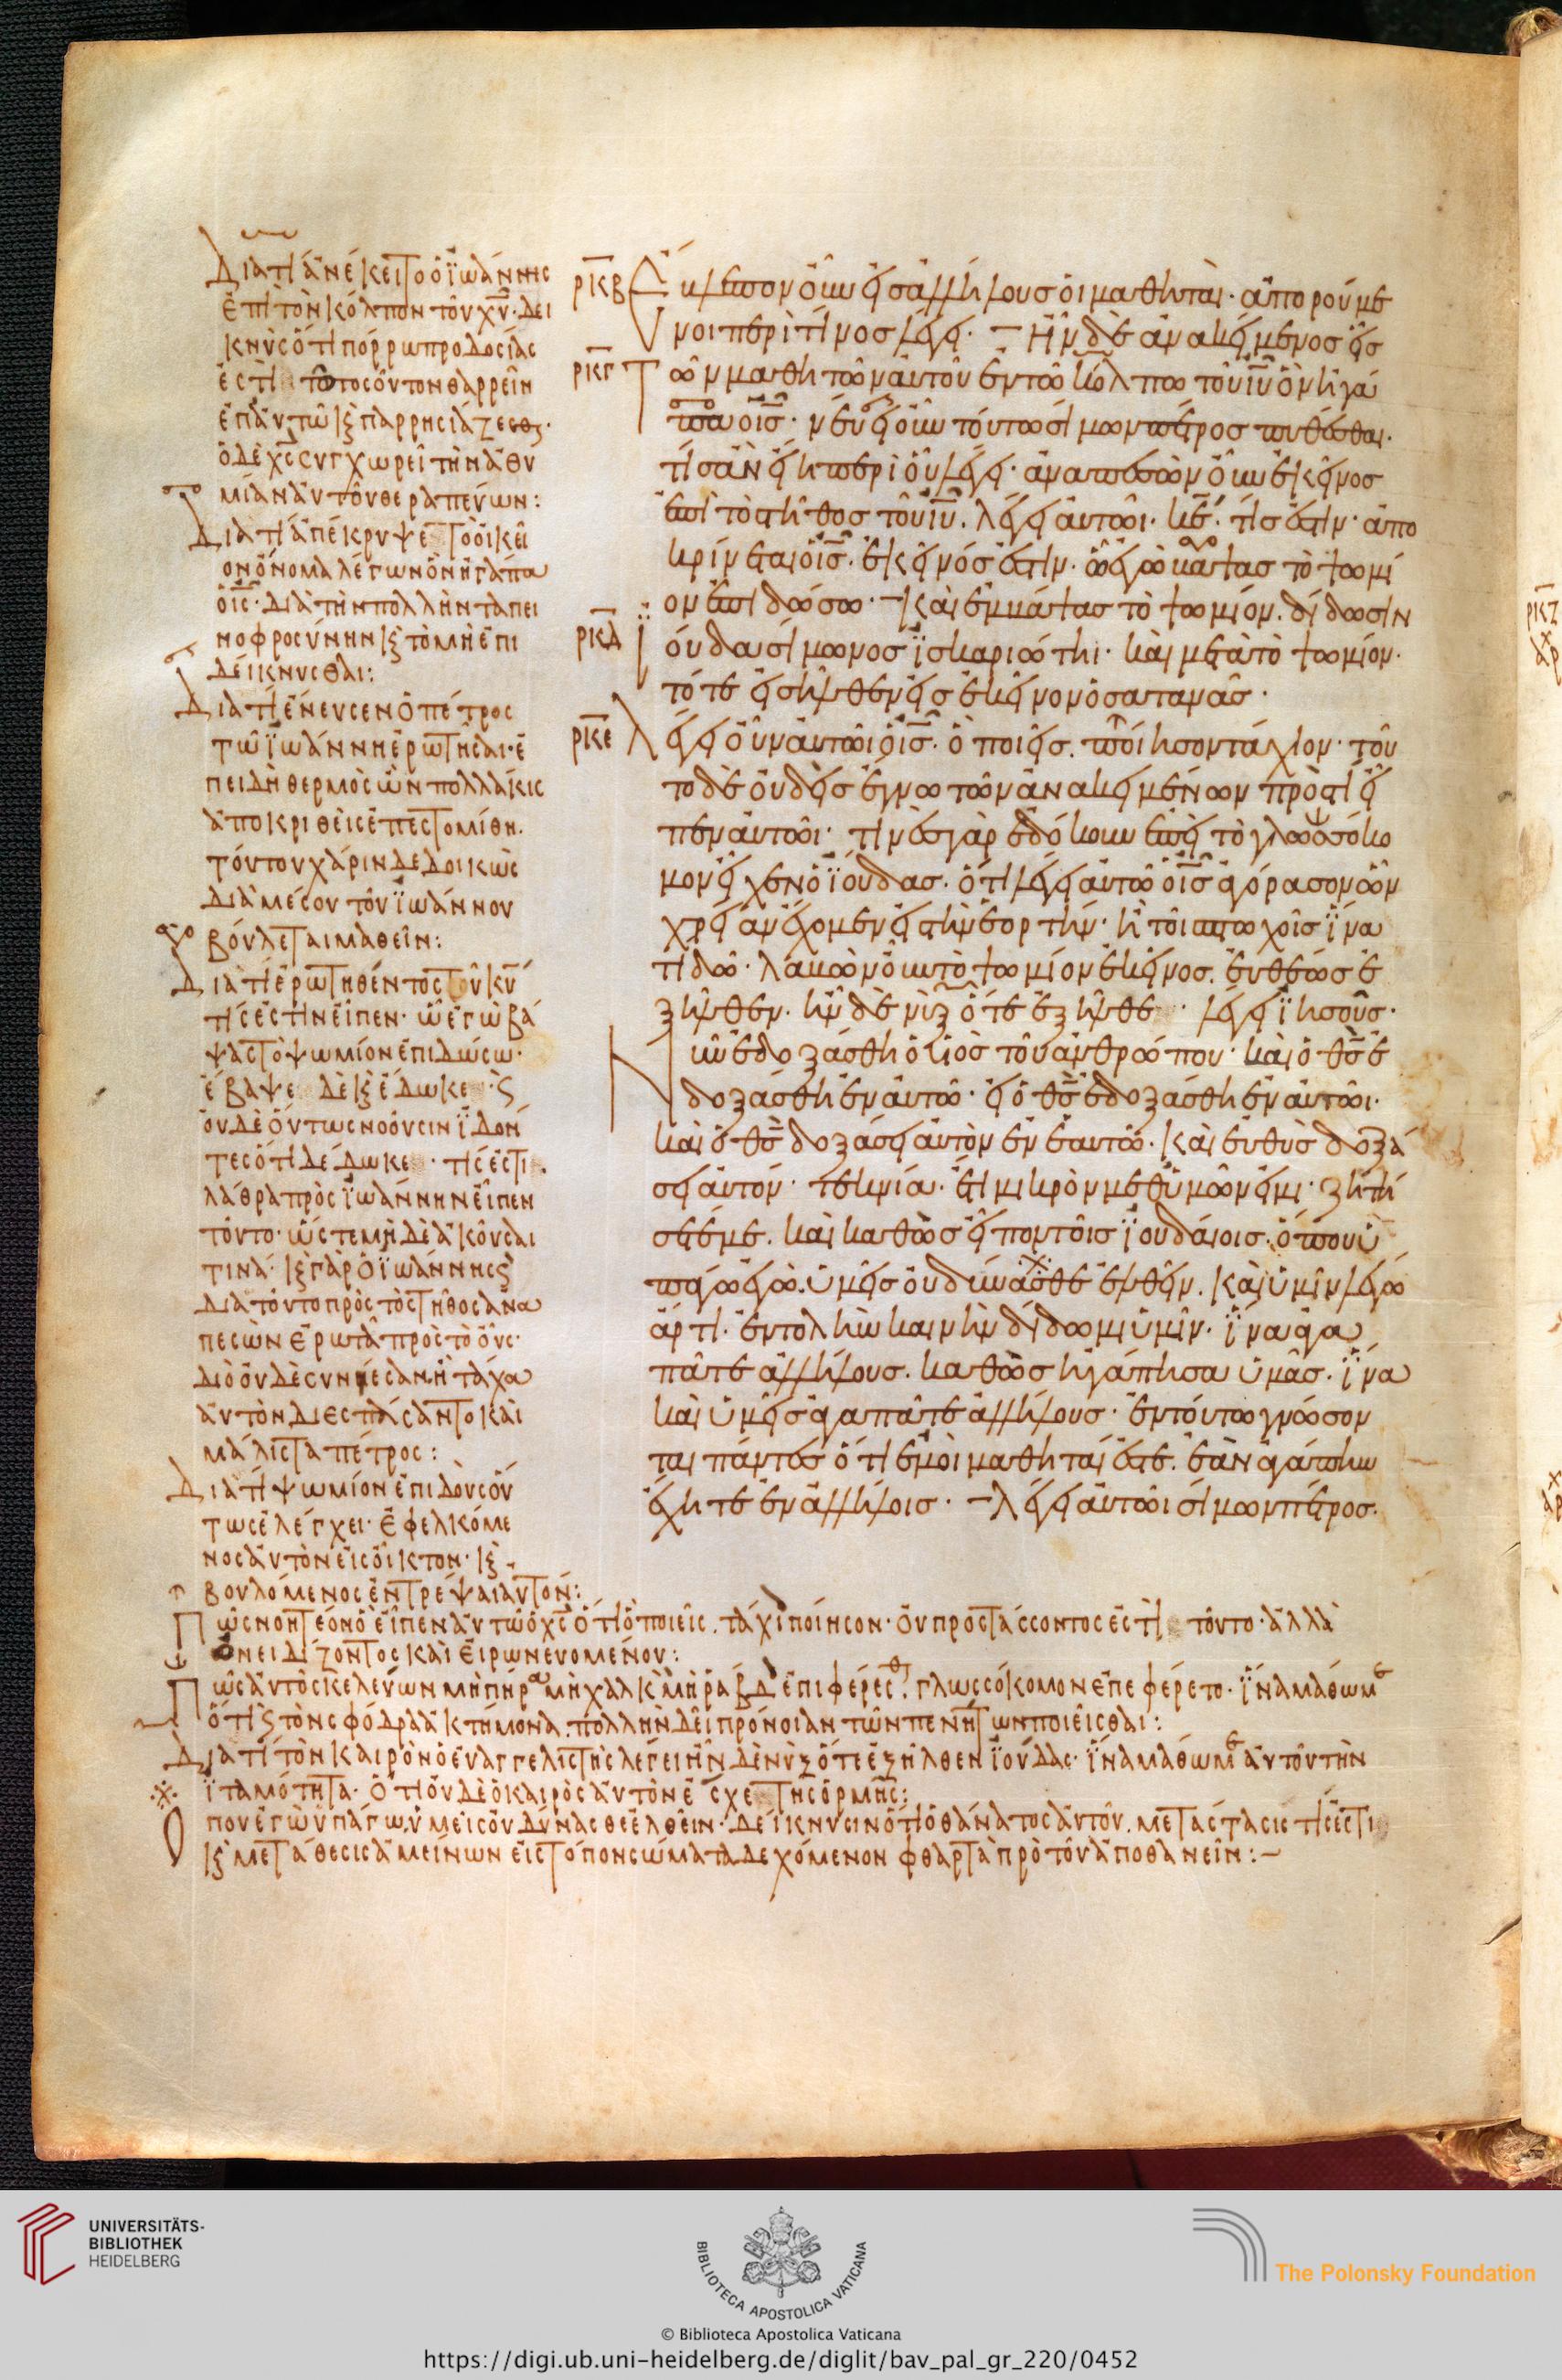 Διατί ἀνέκειτο ὁ ϊωάννης
ἐπὶ τὸν κόλπον τοῦ χυ· δει
κνὺς ὅτι πόρρω προδοσίας
ἐστὶ τοῦτος ὃν τον θαρρεῖν
ἐπ αὐτῶ κ παρρησιάζεσθ·
ὁ δὲ χς συγχωρεῖ τὴν ἀθυ
μίαν αὐτοῦ θεραπεύων:
Διατί ἀπέκρυψε τὸ οἰκεῖ
ον ὄνομα λέγων ὃν ἠγάπα
ὁ ις· διὰ τὴν πολλὴν ταπει
νοφροσύνην κ τὸ μὴ ἐπι
δείκνυσθαι:
Διατί ἔνευσεν ὁ πέτρος
τῶ ϊωάννη ἐρωτῆσαι· ἐ
πειδὴ θερμὸς ὢν πολλάκις
ἀποκριθεὶς ἐπεστομίθη.
τούτου χάριν δεδοικὼς
διὰ μέσου τοῦ ϊωάννου
βούλεται μαθεῖν:
Διατί ἐρωτηθέντος τοῦ κυ
τίς ἐστιν εἶπεν· ὧ ἐγὼ βά
ψας τὸ ψωμίον ἐπιδώσω·
ἔβαψε δὲ κ ἔδωκε· κ
οὐδὲ οὕτως νοοῦσιν ϊδον
τες ὅτι δέδωκε· τίς ἐστι.
λάθρα πρὸς ϊωάννην εἶπεν
τοῦτο· ὥστε μηδὲ ἀκοῦσαι
τινά· κ γὰρ ὁ ϊωάννης
διατοῦτο πρὸς τὸ στῆθος ἀνα
πεσὼν ἐρωτᾶ πρὸς τὸ οὖς·
διὸ οὐδὲ συνῆεσαν· ἢ τάχα
ἂν τὸν διεσπάσαντο καὶ
μάλιστα πέτρος:
Διατί ψωμίον ἐπιδοὺς οὕ
τως ἐλέγχει· ἐφελκόμε
νος αὐτὸν εἰς οἶκτον· κ
βουλόμενος ἐντρέψαι αὐτόν:
ρκβ Ἔβλεπον οὖν εἰς ἀλλήλους οἱ μαθηταὶ· ἀπορούμε
νοι περὶ τίνος λέγει· Ἦν δὲ ἀνακείμενος εἷς
ρκγ τῶν μαθητῶν αὐτοῦ ἐν τῶ κόλπω τοῦ ιυ ὃν ἠγά
πα ὁ ις· νεύει οὖν τούτω σίμων πέτρος πυθέσθαι.
τίς ἂν εἴη περὶ οὗ λέγει· ἀναπεσὼν οὖν ἐκεῖνος
ἐπὶ τὸ στῆθος τοῦ ιυ. λέγει αὐτῶι. κε· τίς ἐστιν· ἀπο
κρίνεται ὁ ις. ἐκεῖνός ἐστιν· ὧ ἐγὼ βάψας τὸ ψωμί
ον ἐπιδώσω· Καὶ ἐμβάψας τὸ ψωμίον. δίδωσιν
ρκδ ϊούδα σίμωνος ϊσκαριώτηι· καὶ μετὰ τὸ ψωμίον.
τότε εἰσῆλθεν εἰς ἐκεῖνον ὁ σατανᾶς·
ρκε λέγει οὖν αὐτῶι ὁ ις. ὃ ποιεῖς. ποίησον τάχιον· τοῦ
το δὲ οὐδεὶς ἔγνω τῶν ἀνακειμένων πρὸς τί εἶ
πεν αὐτῶι· τινὲς γὰρ ἐδόκουν ἐπεὶ τὸ γλωσσόκο
μον εἶχεν ὁ ϊούδας· ὅτι λέγει αὐτῶ ὁ ις ἀγόρασον ὧν
χρείαν ἔχομεν εἰς τὴν ἑορτήν· ἢ τοῖς πτωχοῖς ἵνα
τι δῶ· λαβὼν οὖν τὸ ψωμίον ἐκεῖνος. εὐθέως ἐ
ξῆλθεν. ἦν δὲ νὺξ ὅτε ἐξῆλθε· λέγει ϊησοῦς·
Νῦν ἐδοξάσθη ὁ υἱὸς τοῦ ἀνθρώπου· καὶ ὁ θς ἐ
δοξάσθη ἐν αὐτῶ· εἰ ὁ θς ἐδοξάσθη ἐν αὐτῶι.
καὶ ὁ θς δοξάσει αὐτὸν ἐν ἑαυτῶ· Καὶ εὐθὺς δοξά
σει αὐτόν· τεκνία· ἔτι μικρὸν μεθ ὑμῶν εἰμι· ζητή
σετέ με. καὶ καθὼς εἶπον τοῖς ϊουδαίοις· ὅπου ὑ
πάγω ἐγὼ. ὑμεῖς οὐ δύνασθε ἐλθεῖν. Καὶ ὑμῖν λέγω
ἄρτι. ἐντολὴν καινὴν δίδωμι ὑμῖν· ἵνα ἀγα
πᾶτε ἀλλήλους. καθὼς ἠγάπησα ὑμᾶς. ἵνα
καὶ ὑμεῖς ἀγαπᾶτε ἀλλήλους· ἐν τούτω γνώσον
ται πάντες ὅτι ἐμοὶ μαθηταί ἐστε. ἐὰν ἀγάπην
ἔχητε ἐν ἀλλήλοις· λέγει αὐτῶι σίμων πέτρος.
Πῶς νοητέον ὃ εἶπεν αὐτῶ ὁ χς ὅτι ὃ ποιεῖς. τάχι ποίησον· οὐ προστάσσοντος ἐστὶ τοῦτο· ἀλλὰ
ὀνειδίζοντος καὶ εἰρωνευομένου:
Πῶς αὐτὸς κελεύων μὴ πήρα μὴ χαλκ μὴ ῥάβδ ἐπιφέρεσθ. γλωσσόκομον ἐπεφέρετο· ἵνα μάθωμ
ὅτι κ τὸν σφόδρα ἀκτήμονα. πολλὴν δεῖ πρόνοιαν τῶν πενήτων ποιεῖσθαι:
Διατί τὸν καιρὸν ὁ εὐαγγελιστὴς λέγει ἦν δὲ νὺξ ὅτε ἐξῆλθεν ϊούδας· ἵνα μάθωμ αὐτοῦ τὴν
ϊταμότητα· ὅτι οὐδὲ ὁ καιρὸς αὐτὸν ἔσχε τῆς ὁρμῆς:
Ὅπου ἐγὼ ὑπάγω, ὑμεῖς οὐ δύνασθε ἐλθεῖν· δείκνυσιν ὅτι ὁ θάνατος αὐτοῦ. μετάστασις τίς ἐστι
κ μετάθεσις ἀμείνων εἰς τόπον σώματα δεχόμενον φθαρτὰ πρὸ τοῦ ἀποθανεῖν:
ρκζ
UNIVERSITÄTS-
BIBLIOTHEK
HEIDELBERG
BIBLIOTECA APOSTOLICA VATICANA
The Polonsky Foundation
© Biblioteca Apostolica Vaticana
https://digi.ub.uni-heidelberg.de/diglit/bav_pal_gr_220/0452